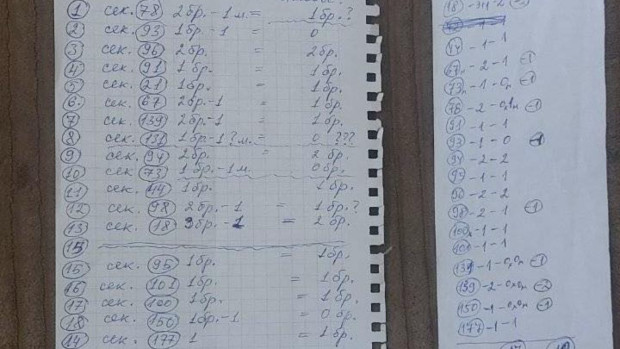 1 сек. 78 2бр.-1м.= 1бр.?
2 сек. 93 1бр.-1 = 0
3 сек. 96 2бр. = 2бр.
4 сек. 91 1бр. = 1бр.
5 сек. 21 1бр. = 1бр.
6. сек. 67 2бр.-1 = 1бр.
7 сек. 139 2бр.-1 = 1бр.
8 сек. 131 1бр-1?м.= 0 ???
9 сек. 94 2бр. = 2 бр.
10 сек. 73 1бр.-1м. 0бр.
11 сек. 114 1бр. 1бр.
12 сек. 98 2бр.-1 = 1бр.?
13 сек. 18 3бр.-1 = 2 бр.
15
15 сек. 95 1бр. 1бр.
16 сек. 101 1бр. = 1бр.
17 сек. 100 1бр. = 1бр.
18 сек. 150 1бр.-1 = 0 бр.
14 сек. 177 1 = 1 бр.
-1-1
67 -2-1 -1
73 -1 -1
78 -2 -1
91 -1-1
93 -1-0
94 -2-2
95 -1-1
96 -2-2
98 -2-1 -1
100 -1-1
101 -1-1
131 -1 -1
139 -2 -2
150 -1 -1
177 -1-1